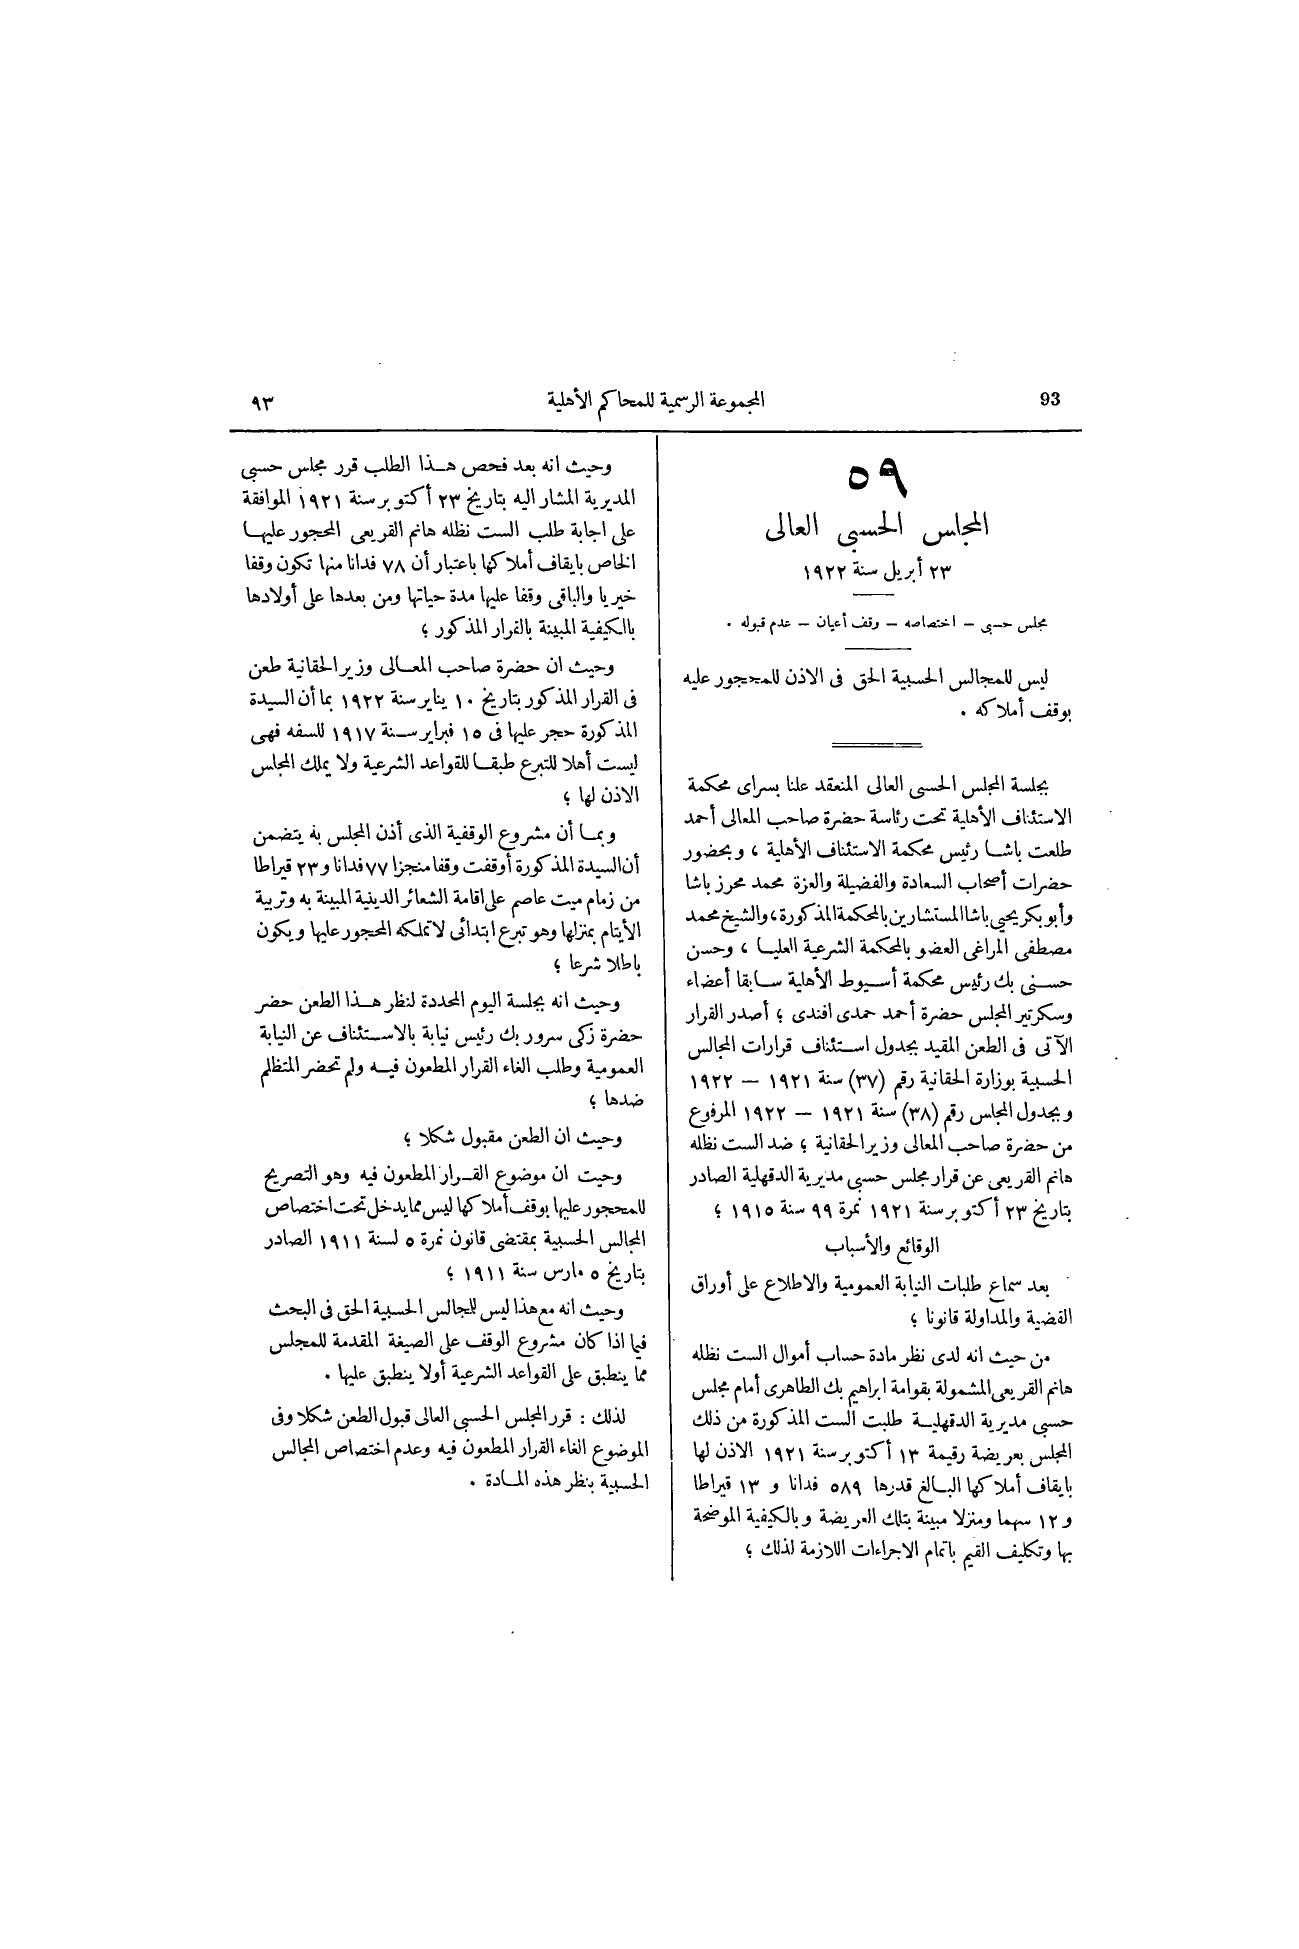 93
المجموعة الرسمية للمحاكم الأهلية
٩٣
٥٩
المجلس الحسبى العالى
٢٣ أبريل سنة ١٩٢٢
مجلس حسبى – اختصاصه – وقف أعيان – عدم قبوله .
ليس للمجالس الحسبية الحق فى الاذن للمحجور عليه
بوقف أملاكه .
بجلسة المجلس الحسبى العالى المنعقد علنا بسراى محكمة
الاستئناف الأهلية تحت رئاسة حضرة صاحب المعالى أحمد
طلعت باشا رئيس محكمة الاستئناف الأهلية ، وبحضور
حضرات أصحاب السعادة والفضيلة والعزة محمد محرز باشا
وأبو بكر يحيى باشا المستشارين بالمحكمة المذكورة، والشيخ محمد
مصطفى المراغى العضو بالمحكمة الشرعية العليا ، وحسن
حسنى بك رئيس محكمة أسيوط الأهلية سابقا أعضاء
وسكرتير المجلس حضرة أحمد حمدى افندى ؛ أصدر القرار
الآتى فى الطعن المقيد بجدول استئناف قرارات المجالس
الحسبية بوزارة الحقانية رقم (٣٧) سنة ١٩٢١ – ١٩٢٢
وبجدول المجلس رقم (٣٨) سنة ١٩٢١ – ١٩٢٢ المرفوع
من حضرة صاحب المعالى وزير الحقانية ؛ ضد الست نظله
هانم القريعى عن قرار مجلس حسبى مديرية الدقهلية الصادر
بتاريخ ٢٣ أكتوبر سنة ١٩٢١ نمرة ٩٩ سنة ١٩١٥ ؛
الوقائع والأسباب
بعد سماع طلبات النيابة العمومية والاطلاع على أوراق
القضية والمداولة قانونا ؛
من حيث انه لدى نظر مادة حساب أموال الست نظله
هانم القريعى المشمولة بقوامة ابراهيم بك الطاهرى أمام مجلس
حسبى مديرية الدقهلية طلبت الست المذكورة من ذلك
المجلس بعريضة رقيمة ١٣ أكتوبر سنة ١٩٢١ الاذن لها
بايقاف أملاكها البالغ قدرها ٥٨٩ فدانا و ١٣ قيراطا
و ١٢ سهما ومنزلا مبينة بتلك العريضة وبالكيفية الموضحة
بها وتكليف القيم باتمام الاجراءات اللازمة لذلك ؛
وحيث انه بعد فحص هذا الطلب قرر مجلس حسبى
المديرية المشار اليه بتاريخ ٢٣ أكتوبر سنة ١٩٢١ الموافقة
على اجابة طلب الست نظله هانم القريعى المحجور عليها
الخاص بايقاف أملاكها باعتبار أن ٧٨ فدانا منها تكون وقفا
خيريا والباقى وقفا عليها مدة حياتها ومن بعدها على أولادها
بالكيفية المبينة بالقرار المذكور ؛
وحيث ان حضرة صاحب المعالى وزير الحقانية طعن
فى القرار المذكور بتاريخ ١٠ يناير سنة ١٩٢٢ بما أن السيدة
المذكورة حجر عليها فى ١٥ فبراير سنة ١٩١٧ للسفه فهى
ليست أهلا للتبرع طبقا للقواعد الشرعية ولا يملك المجلس
الاذن لها ؛
وبما أن مشروع الوقفية الذى أذن المجلس به يتضمن
أن السيدة المذكورة أوقفت وقفا منجزا ٧٧ فدانا و ٢٣ قيراطا
من زمام ميت عاصم على اقامة الشعائر الدينية المبينة به وتربية
الأيتام بمنزلها وهو تبرع ابتدائى لا تملكه المحجور عليها ويكون
باطلا شرعا ؛
وحيث انه بجلسة اليوم المحددة لنظر هذا الطعن حضر
حضرة زكى سرور بك رئيس نيابة بالاستئناف عن النيابة
العمومية وطلب الغاء القرار المطعون فيه ولم تحضر المتظلم
ضدها ؛
وحيث ان الطعن مقبول شكلا ؛
وحيت ان موضوع القرار المطعون فيه وهو التصريح
للمحجور عليها بوقف أملاكها ليس مما يدخل تحت اختصاص
المجالس الحسبية بمقتضى قانون نمرة ٥ لسنة ١٩١١ الصادر
بتاريخ ٥ مارس سنة ١٩١١ ؛
وحيث انه مع هذا ليس للجالس الحسبية الحق فى البحث
فيما اذا كان مشروع الوقف على الصيغة المقدمة للمجلس
مما ينطبق على القواعد الشرعية أولا ينطبق عليها .
لذلك : قرر المجلس الحسبى العالى قبول الطعن شكلا وفى
الموضوع الغاء القرار المطعون فيه وعدم اختصاص المجالس
الحسبية بنظر هذه المادة .